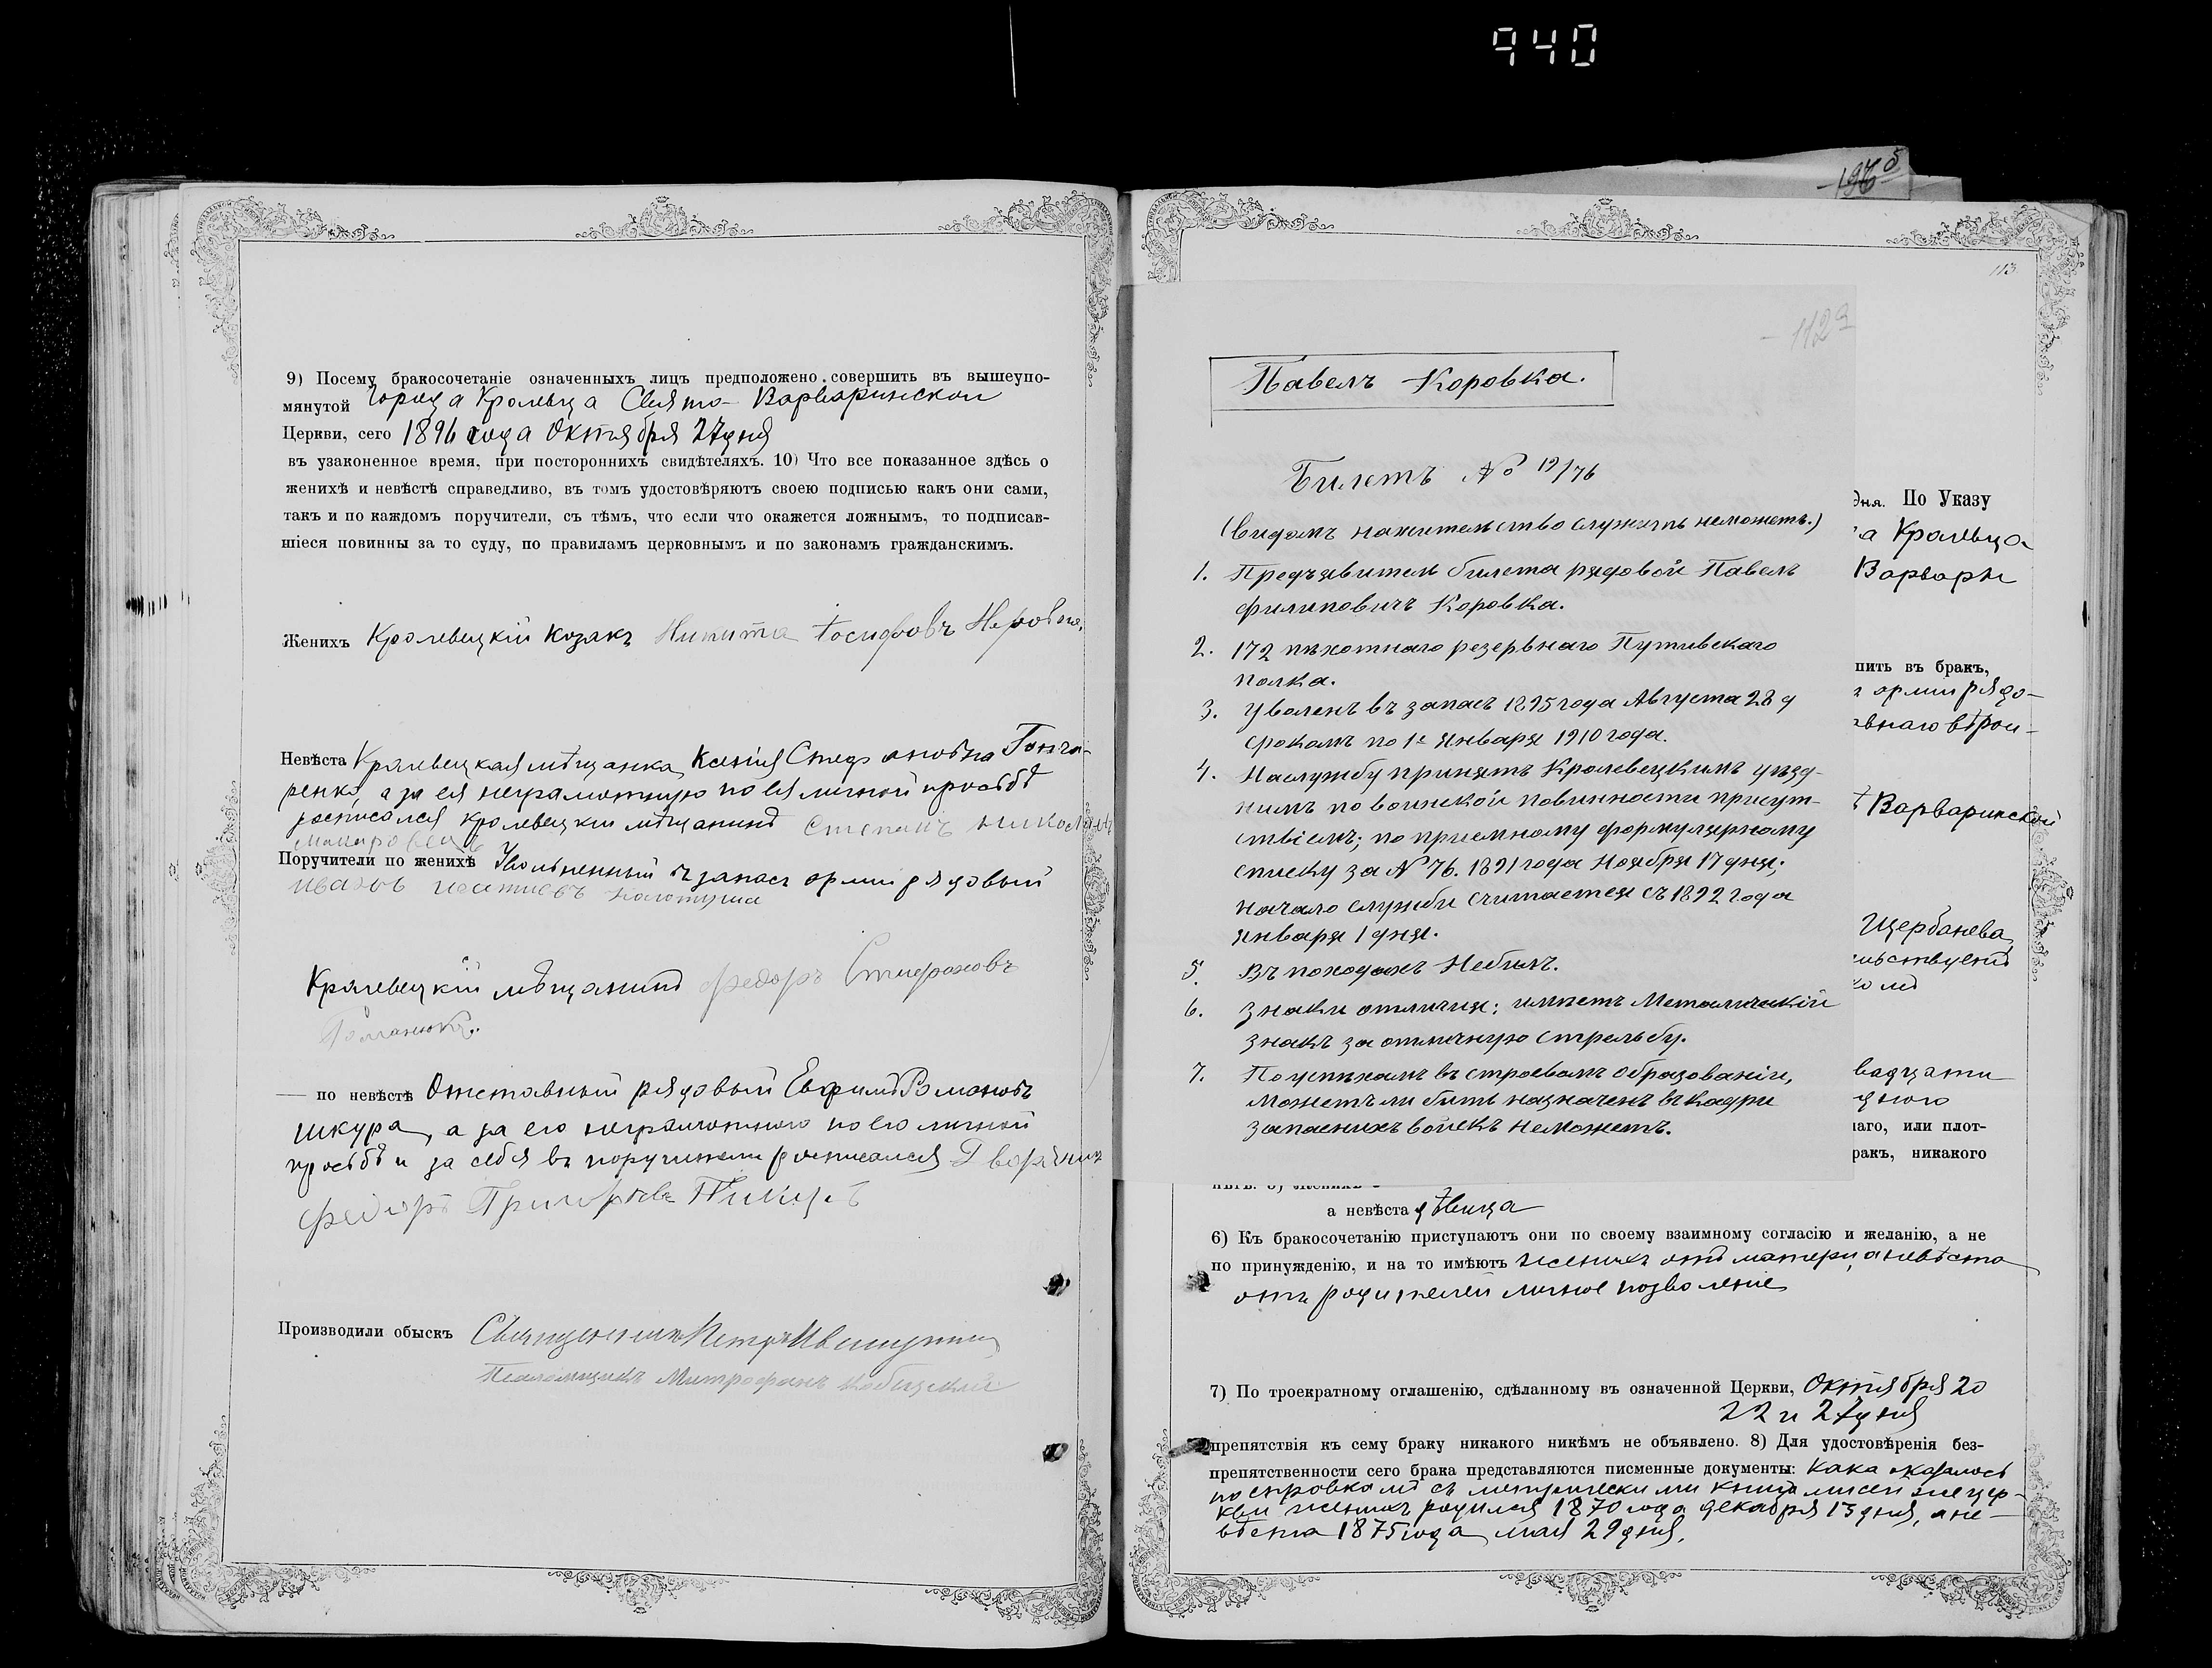 940
196 б
9) Посему бракосочетаніе означенныхъ лицъ предположено совершить въ вышеупо-
мянутой города Кролевца Свято-Варваринской
Церкви, сего 1896 года Октября 27 дня
въ узаконенное время, при постороннихъ свидѣтеляхъ. 10) Что все показанное здѣсь о
женихѣ и невѣстѣ справедливо, въ томъ удостовѣряютъ своею подписью какъ они сами,
такъ и по каждомъ поручители, съ тѣмъ, что если что окажется ложнымъ, то подписав-
шіеся повинны за то суду, по правиламъ церковнымъ и по законамъ гражданскимъ.
Женихъ Кролевецкій козакъ Никита Іосифовъ
Невѣста Кролевецкая мѣщанка Ксенія Стефановна Гонча-
ренко, а за ея неграмотную по ея личной просьбѣ
росписался кролевецкій мѣщанинъ Степанъ
Поручители по женихѣ Уволенный въ запасъ арміи рядовый
Иванъ
Кролевецкій мѣщанинъ Федоръ Стефановъ
Романюкъ.
— по невѣстѣ Отставный рядовый Евфимъ Романовъ
Шкура, а за его неграмотного по его личной
просьбѣ и за себя въ поручители росписался Дворянинъ
Федоръ Григорьевъ
Производили обыскъ Священникъ Петръ
Псаломщикъ Митрофанъ
113
112а
Павелъ Коровка.
Билетъ № 19/76
(видомъ нажительство служить неможетъ.)
1. Предъявитель билета рядовой Павелъ
Филиповичъ Коровка.
2. 172 пѣхотнаго резервнаго Путивскаго
полка.
3. Уволенъ въ запасъ 1895 года Августа 28 д
срокомъ по 1е Января 1910 года.
4. Наслужбу принятъ Кролевецкимъ уѣзд-
нимъ по воинской повинности присут-
ствіемъ; по приемному формулярному
списку за № 76. 1891 года Ноября 17 дня;
начало служби считается съ 1892 года
Января 1 дня.
5. Въ походахъ Небилъ.
6. Знаки отличия: имѣетъ Металическій
знакъ за отличную стрельбу.
7. Поуспѣхамъ въ строевомъ образованіи,
можетъ ли быть назначенъ въ кадри
запаснихъ войскъ Неможетъ.
дня. По Указу
а Кролевца
Варвары
пить въ бракъ,
арміи рядо-
авнаго вѣрои-
Варваринской
Щербанева
ьствуетъ
вадцати
дного
наго, или плот-
ракъ, никакого
а невѣста дѣвица
6) Къ бракосочетанію приступаютъ они по своему взаимному согласію и желанію, а не
по принужденію, и на то имѣютъ женихъ отъ матери, а невѣста
отъ родителей личное позволеніе
7) По троекратному оглашенію, сдѣланному въ означенной Церкви, Октября 20
22 и 27 дня
препятствія къ сему браку никакого никѣмъ не объявлено. 8) Для удостовѣренія без-
препятственности сего брака представляются писменные документы: Какъ оказалось
по справкамъ съ метрическими книгами сей же цер-
кви женихъ родился 1870 года декабря 13 дня, а не-
вѣста 1875 года мая 29 дня.